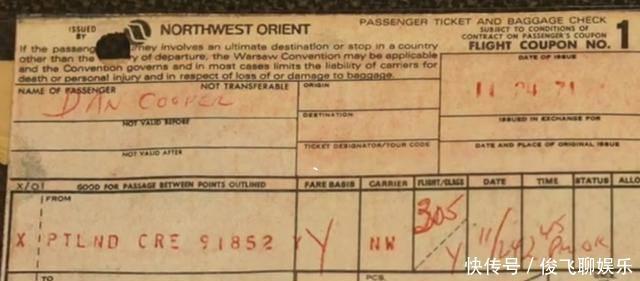 ISSUED BY NORTHWEST ORIENT
PASSENGER TICKET AND BAGGAGE CHECK
SUBJECT TO CONDITIONS OF
CONTRACT ON PASSENGER'S COUPON
FLIGHT COUPON NO. 1
If the passeng ney involves an ultimate destination or stop in a country
other than the ry of departure, the Warsaw Convention may be applicable
and the Convention governs and in most cases limits the liability of carriers for
death or personal injury and in respect of loss of or damage to baggage.
DATE OF ISSUE
11 24 71
NAME OF PASSENGER NOT TRANSFERABLE
DAN COOPER
ORIGIN
NOT VALID BEFORE
DESTINATION
ISSUED IN EXCHANGE FOR
NOT VALID AFTER
TICKET DESIGNATOR/TOUR CODE
DATE AND PLACE OF ORIGINAL ISSUE
X/O GOOD FOR PASSAGE BETWEEN POINTS OUTLINED FARE BASIS CARRIER FLIGHT/CLASS DATE TIME STATUS ALLO
FROM
X PTLND CRE 91852 Y Y NW 305 Y 11/24 45 PM OK
TO
PCS.
快传号 / 俊飞聊娱乐